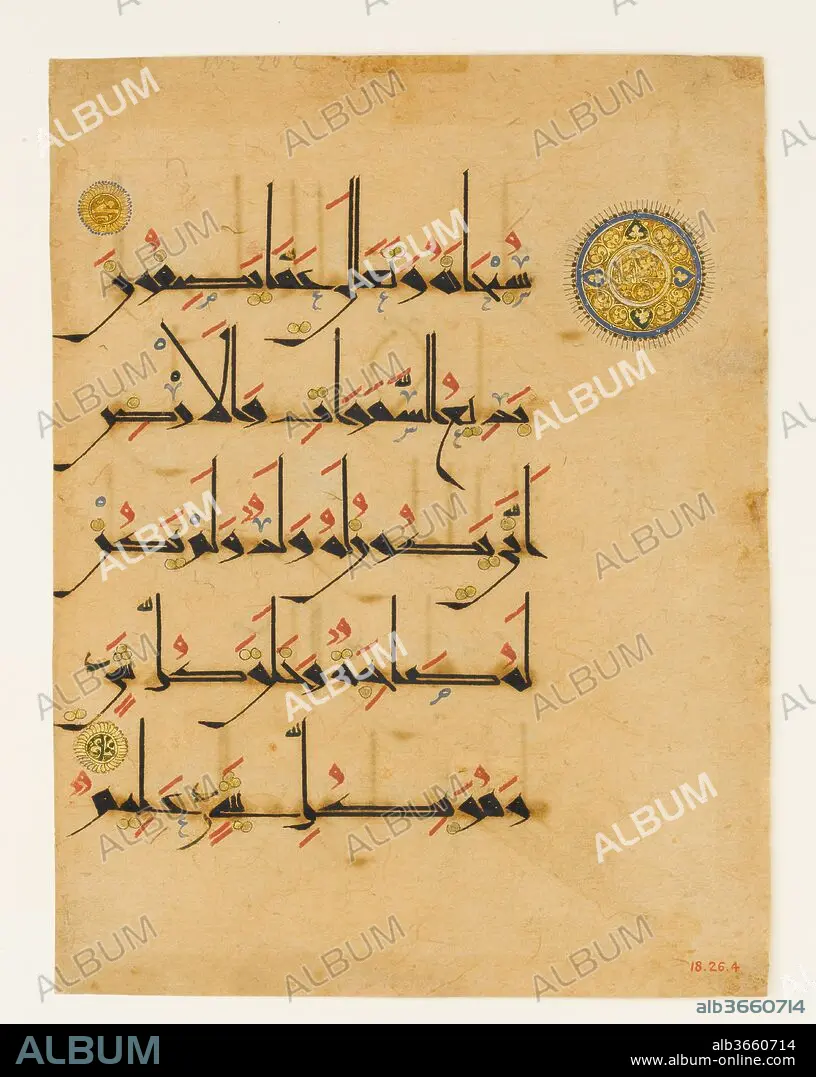 سُبْحَانَهُ وَتَعَلَى عَمَّا يَصِفُونَ
بَدِيعُ السَّمَوَاتِ وَالْأَرْضِ
أَنَّى يَكُونُ لَهُ وَلَدٌ وَلَمْ تَكُنْ
لَهُ صَاحِبَةٌ وَخَلَقَ كُلَّ شَيْءٍ
وَهُوَ بِكُلِّ شَيْءٍ عَلِيمٌ
18.26.4
alb3660714
ALBUM
alb3660714
www.album-online.com